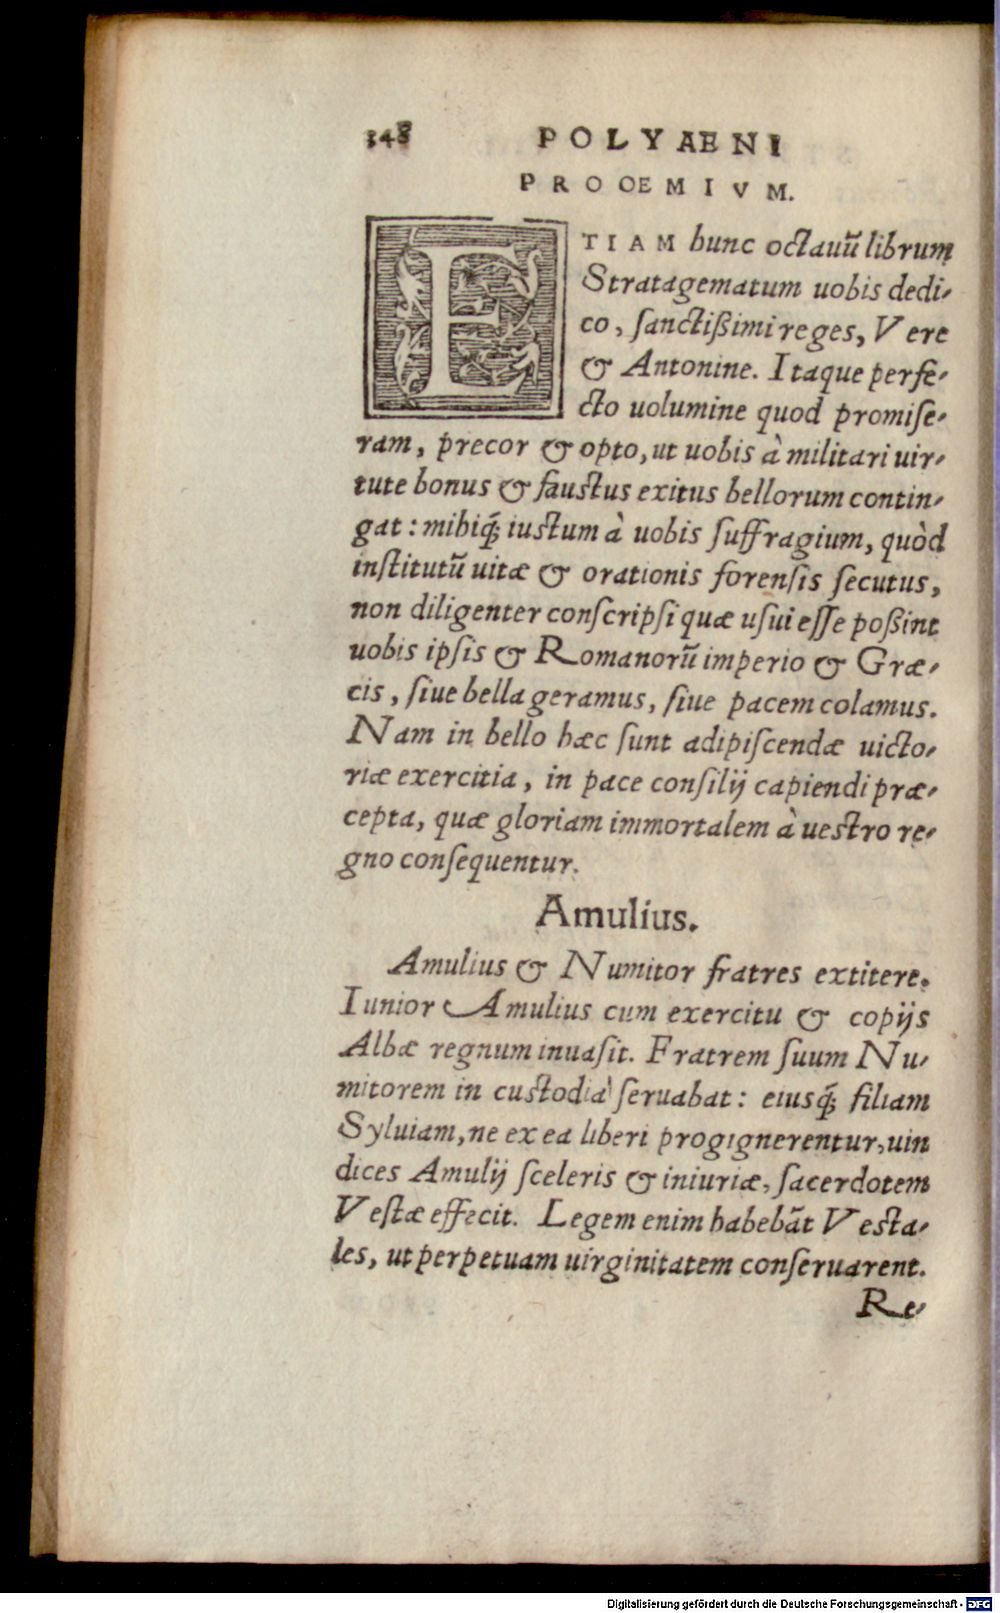 348 POLYAENI
PROOEMIVM.
ETIAM hunc octauũ librum
Stratagematum uobis dedi-
co, ſanctißimi reges, Vere
& Antonine. Itaque perfe-
cto uolumine quod promiſe-
ram, precor & opto, ut uobis à militari uir-
tute bonus & fauſtus exitus bellorum contin-
gat: mihiq́; iuſtum à uobis ſuffragium, quòd
inſtitutũ uitæ & orationis forenſis ſecutus,
non diligenter conſcripſi quæ uſui eſſe poßint
uobis ipſis & Romanorũ imperio & Græ-
cis, ſiue bella geramus, ſiue pacem colamus.
Nam in bello hæc ſunt adipiſcendæ uicto-
riæ exercitia, in pace conſilij capiendi præ-
cepta, quæ gloriam immortalem à ueſtro re-
gno conſequentur.
Amulius.
Amulius & Numitor fratres extitere.
Iunior Amulius cum exercitu & copijs
Albæ regnum inuaſit. Fratrem ſuum Nu-
mitorem in cuſtodia ſeruabat: eiusq́; filiam
Syluiam, ne ex ea liberi progignerentur, uin
dices Amulij ſceleris & iniuriæ, ſacerdotem
Veſtæ effecit. Legem enim habebãt Veſta-
les, ut perpetuam uirginitatem conſeruarent.
Re-
Digitalisierung gefördert durch die Deutsche Forschungsgemeinschaft - DFG